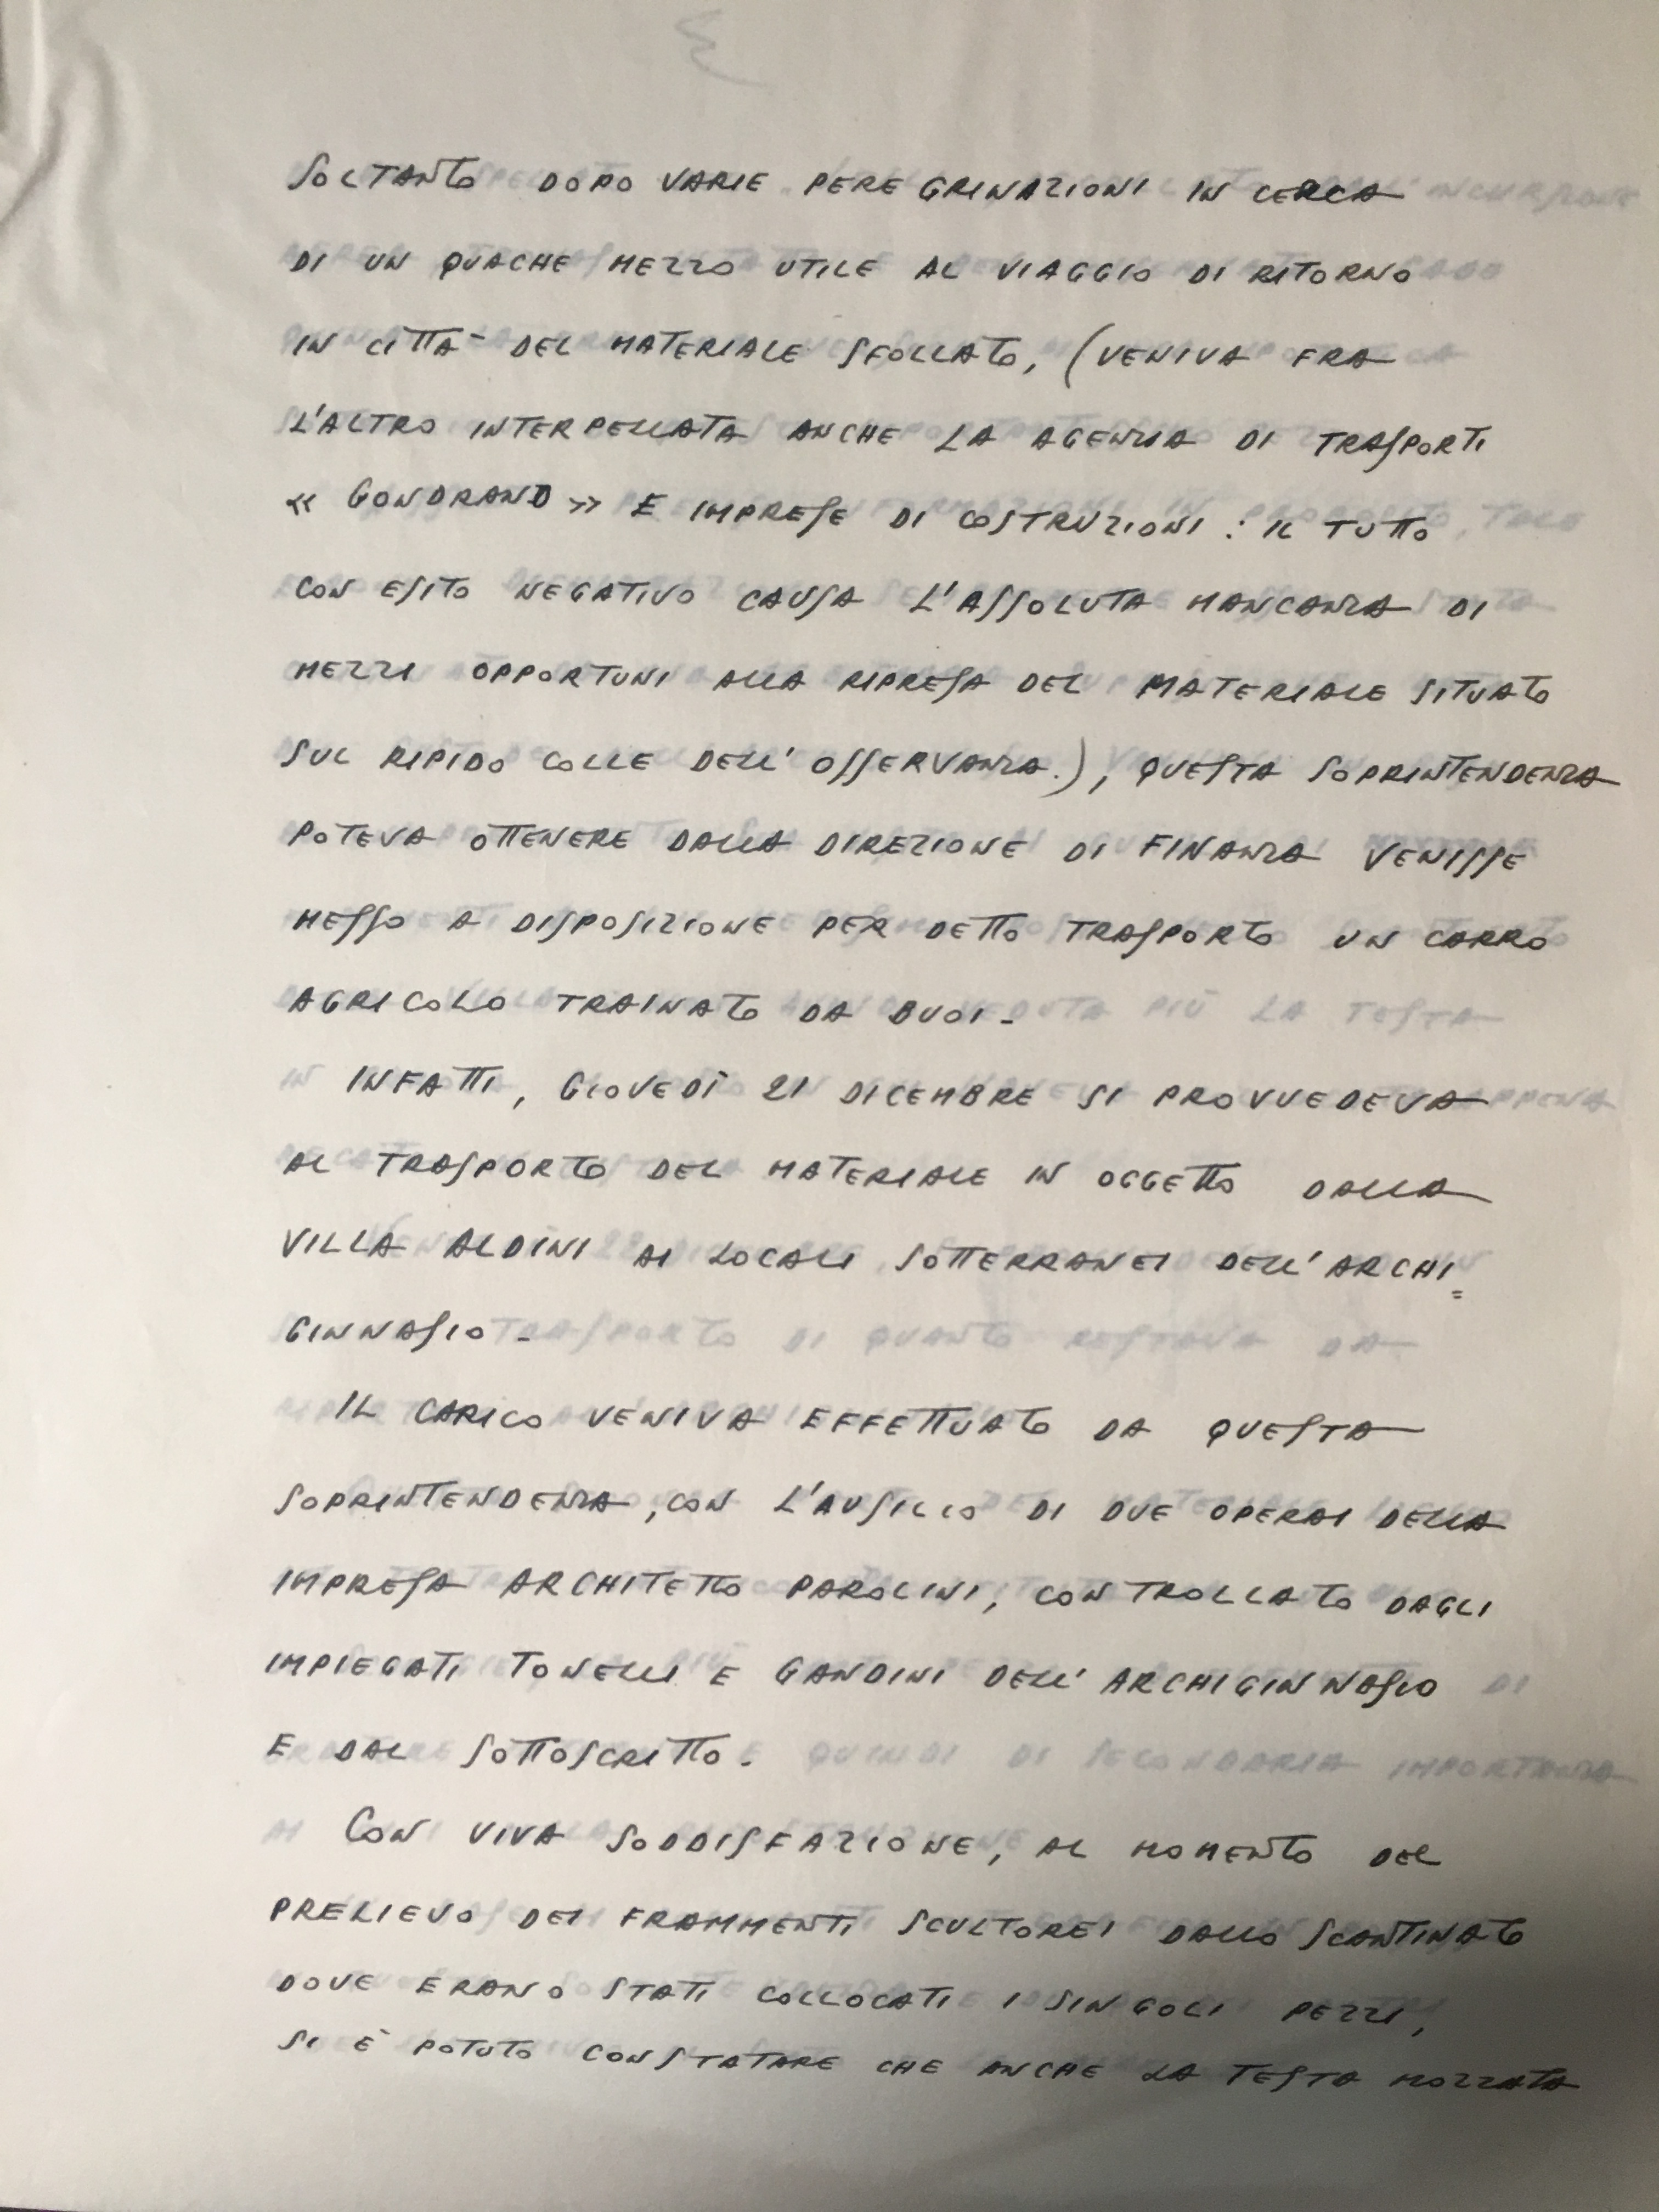 SOLTANTO DOPO VARIE PEREGRINAZIONI IN CERCA
DI UN QUALCHE MEZZO UTILE AL VIAGGIO DI RITORNO
IN CITTA' DEL MATERIALE SFOLLATO, (VENIVA FRA
L'ALTRO INTERPELLATA ANCHE LA AGENZIA DI TRASPORTI
« GONDRAND » E IMPRESE DI COSTRUZIONI : IL TUTTO
CON ESITO NEGATIVO CAUSA L'ASSOLUTA MANCANZA DI
MEZZI OPPORTUNI ALLA RIPRESA DEL MATERIALE SITUATO
SUL RIPIDO COLLE DELL' OSSERVANZA.), QUESTA SOPRINTENDENZA
POTEVA OTTENERE DALLA DIREZIONE DI FINANZA VENISSE
MESSO A DISPOSIZIONE PER DETTO TRASPORTO UN CARRO
AGRICOLO TRAINATO DA BUOI.
INFATTI, GIOVEDÌ 21 DICEMBRE SI PROVVEDEVA
AL TRASPORTO DEL MATERIALE IN OGGETTO DALLA
VILLA ALDINI AI LOCALI SOTTERRANEI DELL'ARCHI=
GINNASIO.
IL CARICO VENIVA EFFETTUATO DA QUESTA
SOPRINTENDENZA, CON L'AUSILIO DI DUE OPERAI DELLA
IMPRESA ARCHITETTO PAROLINI, CONTROLLATO DAGLI
IMPIEGATI TONELLI E GANDINI DELL' ARCHIGINNASIO
E DAL SOTTOSCRITTO.
CON VIVA SODDISFAZIONE, AL MOMENTO DEL
PRELIEVO DEI FRAMMENTI SCULTOREI DALLO SCANTINATO
DOVE ERANO STATI COLLOCATI I SINGOLI PEZZI,
SI È POTUTO CONSTATARE CHE ANCHE LA TESTA MOZZATA